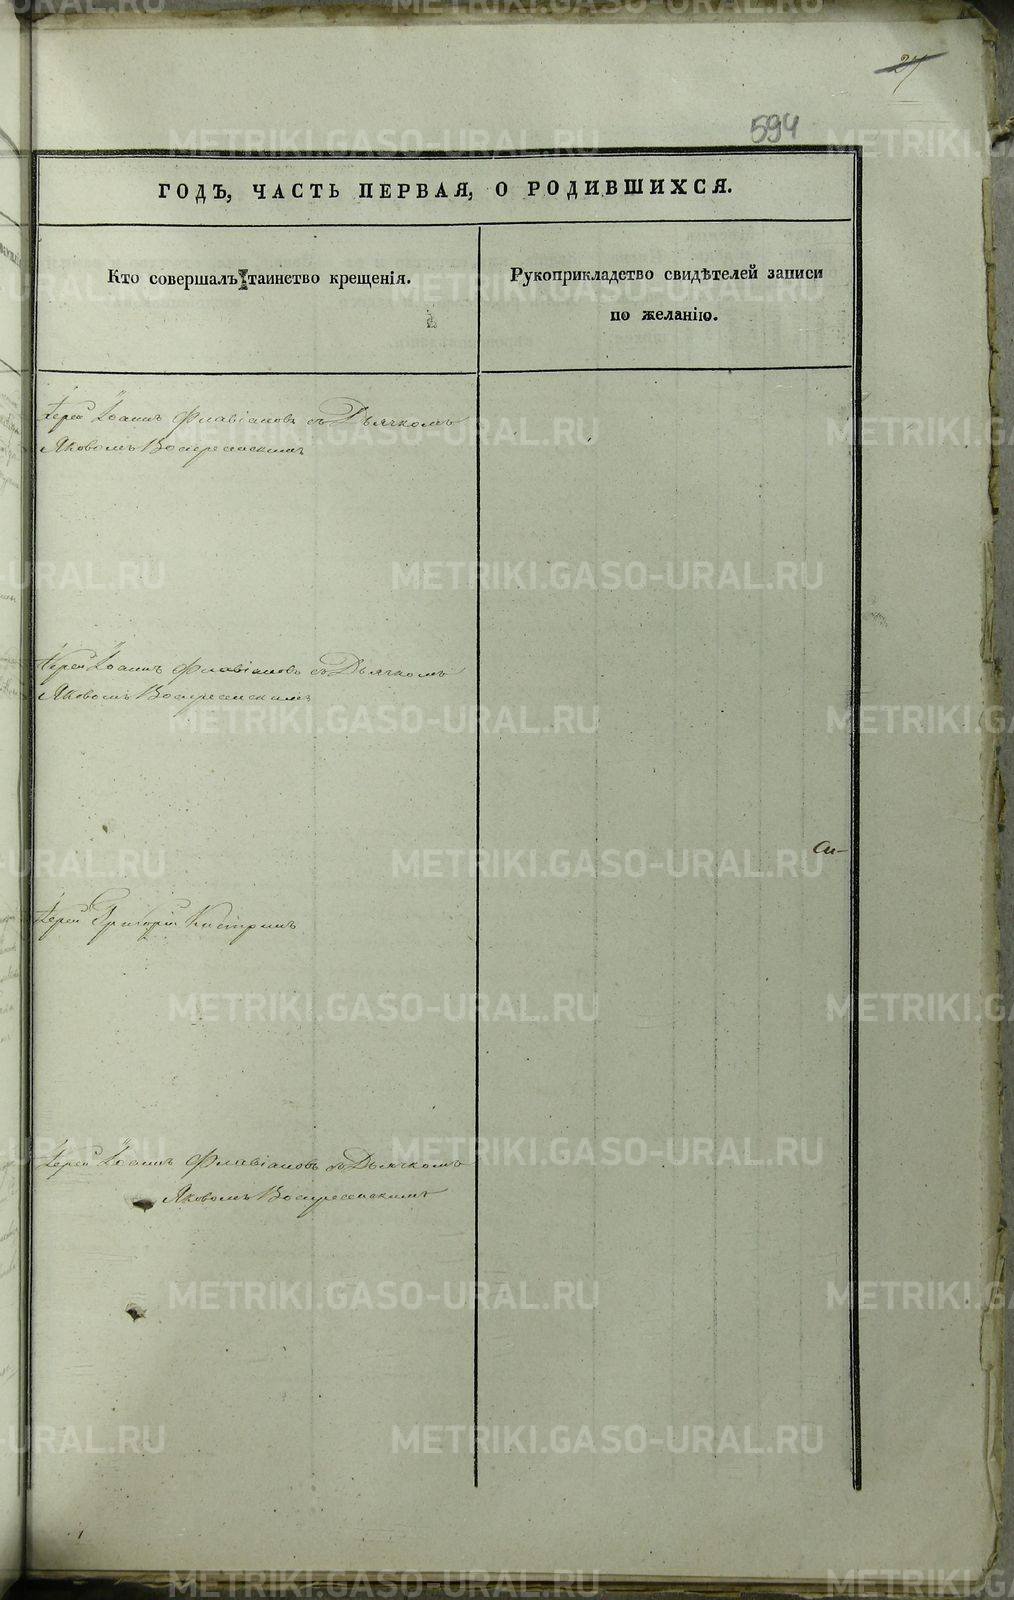 27
594
ГОДЪ, ЧАСТЬ ПЕРВАЯ, О РОДИВШИХСЯ.
Кто совершалъ таинство крещенія.
Рукоприкладство свидѣтелей записи
по желанію.
Іерей Іоаннъ Флавіановъ съ Дьячкомъ
Яковомъ Воскресенскимъ
Іерей Іоаннъ Флавіановъ съ Дьячкомъ
Яковомъ Воскресенскимъ
Іерей Григорій
Іерей Іоаннъ Флавіановъ съ Дьячкомъ
Яковомъ Воскресенскимъ
METRIKI.GASO-URAL.RU